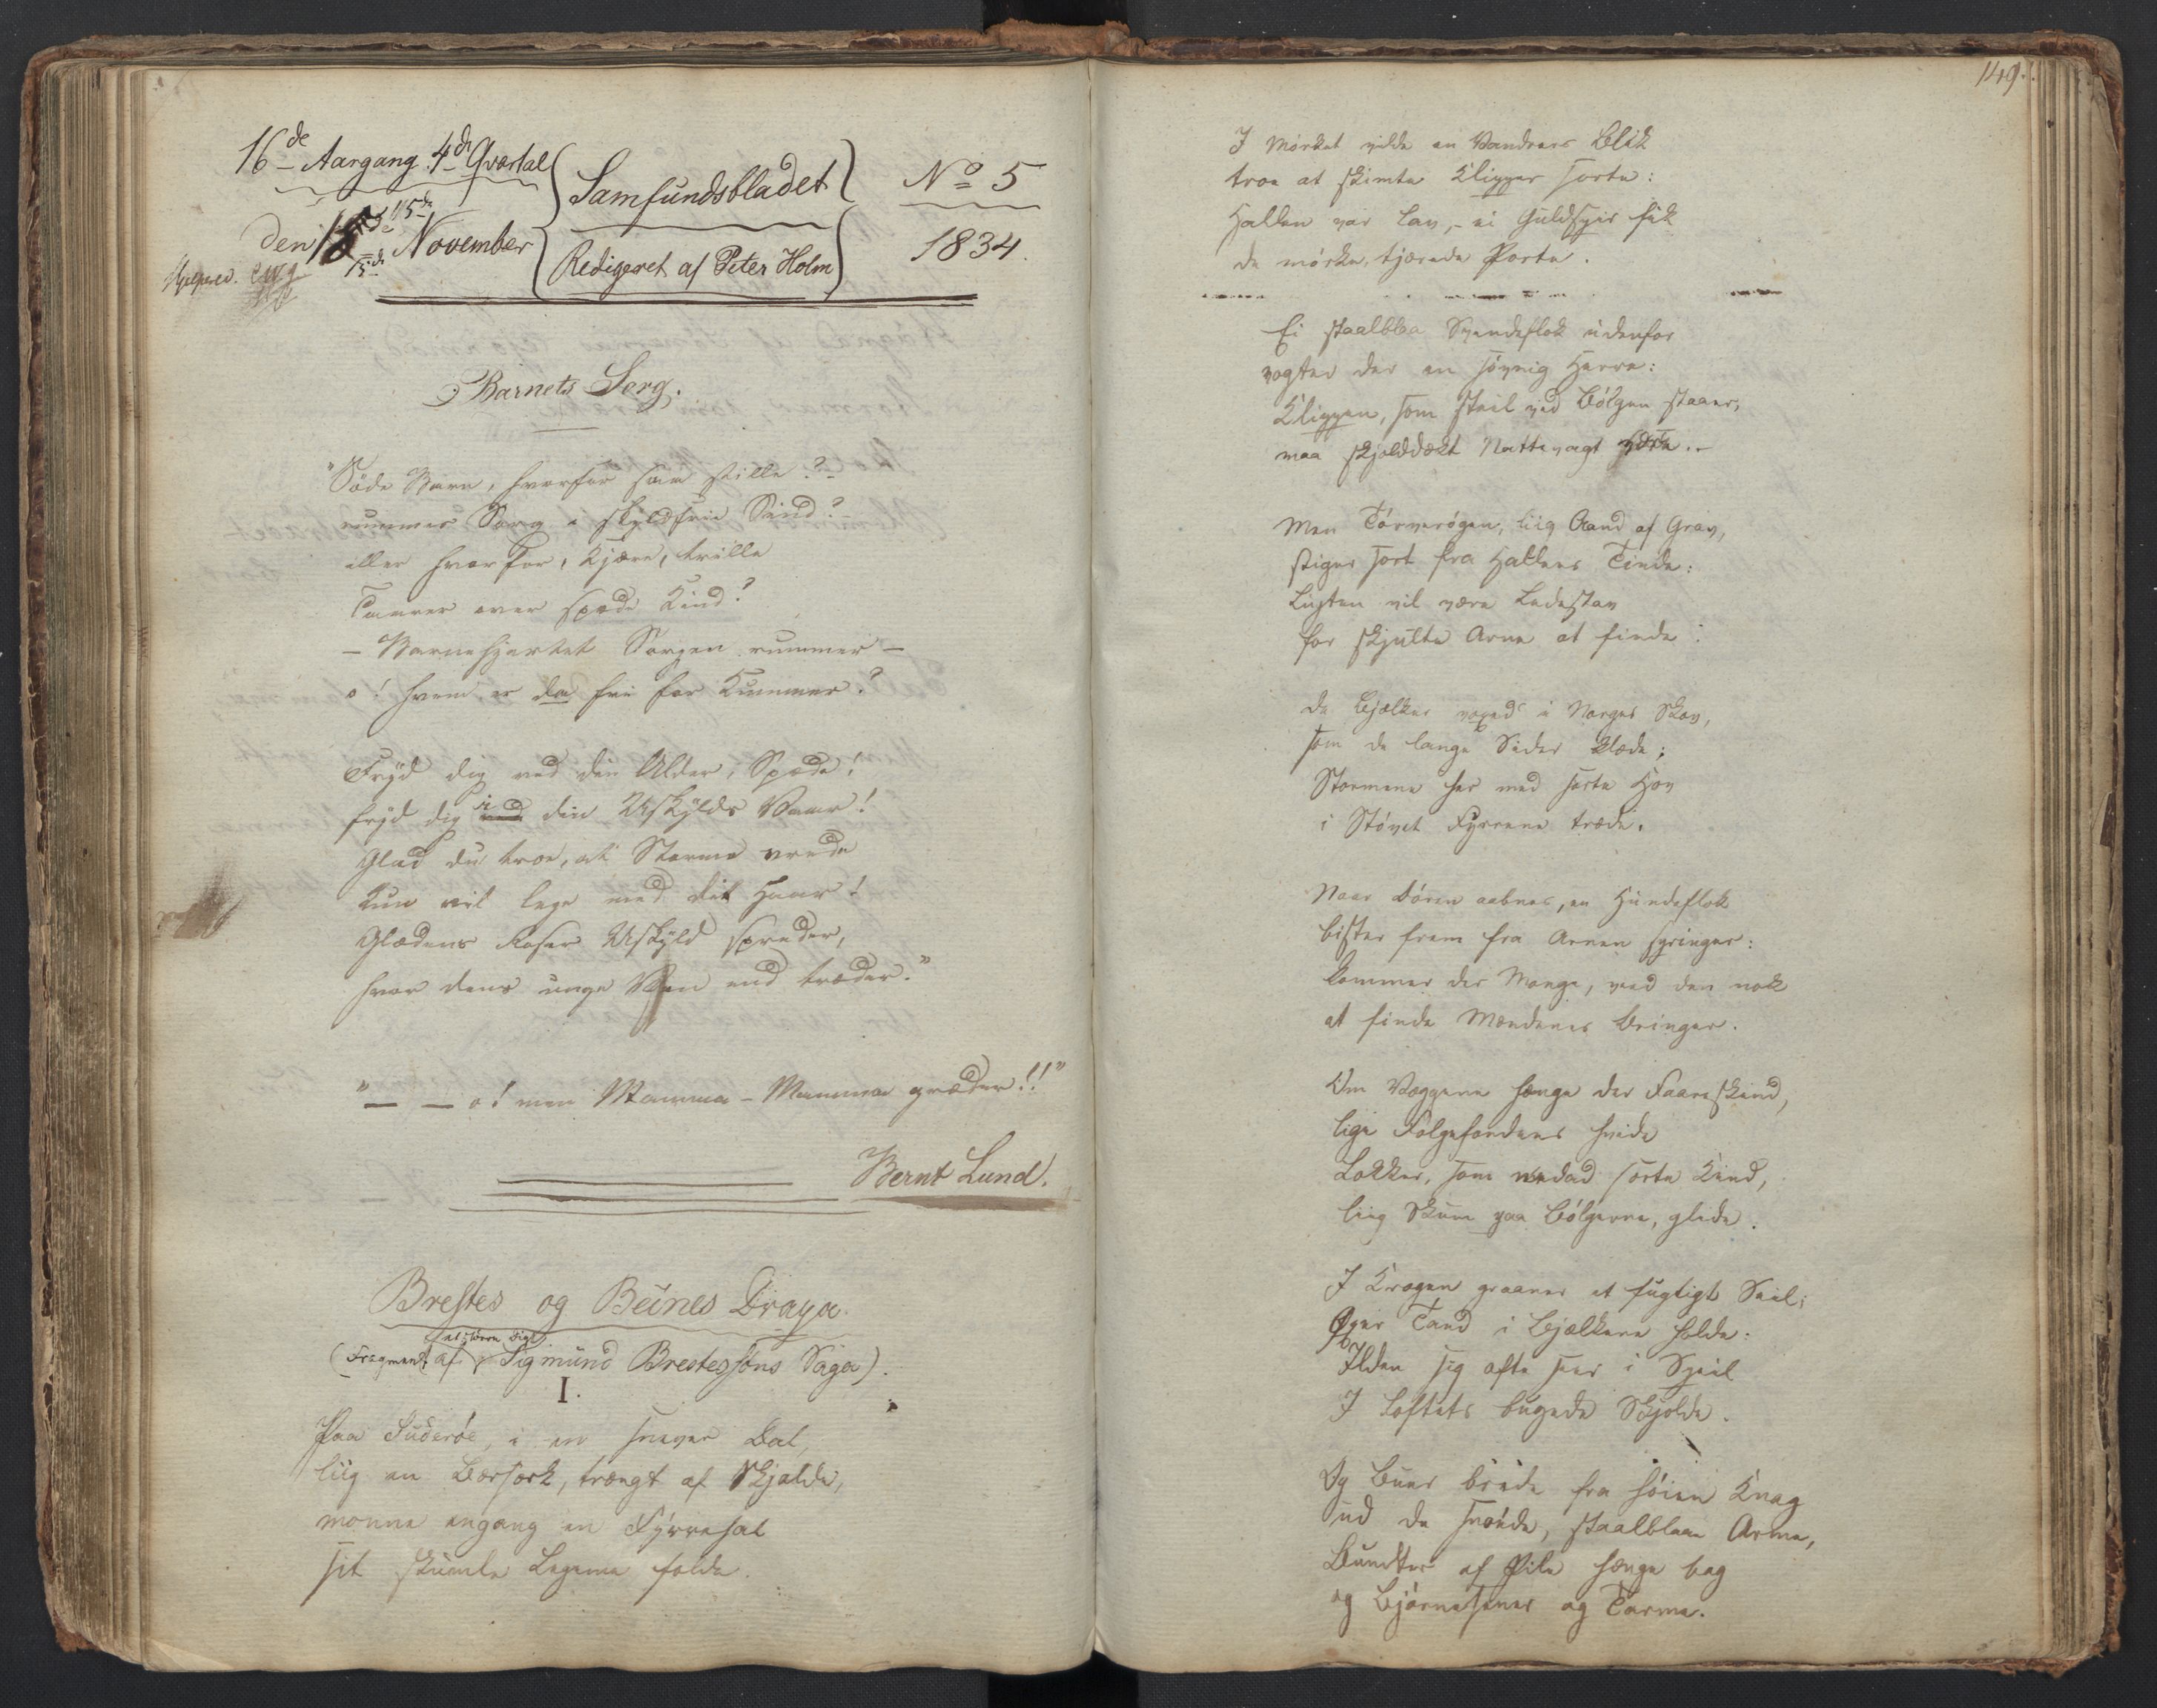 16de Aargang 4de Qvartal
Samfundsbladet
No 5
den 15de November
15de
15de
Redigeret af Peter Holm
1834.
Barnets Sorg.
"Søde Barn, hvorfor saa stille?
rummes Sorg i skyldfrie Sind?
eller hvorfor, kjære, trille
Taarer over spæde Kind?
– Barnehjertet Sorgen rummer –
o! hvem er da fri for Kummer?
Fryd dig ved din Alder, Spæde!
fryd dig i din Uskylds Vaar!
Glad du troe, at Storme vrede
kun vil lege med dit Haar!
Glædens Roser Uskyld spreder,
hvor dens unge Ven end træder."
"— — o! men Mamma – Mamma græder!!"
Bernt Lund.
Brestes og Beines Drapa.
(Fragment af et større Digt Sigmund Brestessøns Saga).
I.
Paa Suderøe, i en snever Dal,
liig en Bersærk, trængt af Skjolde,
monne engang en Fyrresal
sit skumle Legeme folde.
149.
I Mørket vilde en Vandrers Blik
troe at skimte Klipper sorte:
Hallen var lav, – ei Guldspir fik
de mørke, tjærede Porte.
Ei staalblaa Svendeflok udenfor
vogter der en søvnig Herre:
Klippen, som steil ved Bølgen staaer,
maa skjolddækt Nattevagt være. –
Men Tørverøgen, liig Aand af Grav,
stiger sort fra Hallens Tinde:
Lugten vil være Ledestav
for skjulte Arne at finde:
De Bjælker voxed i Norges Skov,
som de lange Sider klæde;
Stormene her med sorte Hov
i Støvet Fyrrene træde.
Naar Døren aabnes, en Hundeflok
bister frem fra Arnen springer:
kommer der Mange, veed den nok
at finde Mændenes Bringer.
Om Væggene hænge der Faareskind,
lige Folgefondens hvide
Lokker, som nedad sorte Kind,
liig Skum paa Bølgerne, glide.
I Krogen graaner et fugtigt Seil;
Øxer Tand i Bjælkene holde:
Ilden sig ofte seer i Speil
I Loftets bugede Skjolde.
Og Buer brede fra høien Knag
ud de snoede, staalblaae Arme,
Bundter af Pile hænge bag
og Bjørnesener og Tarme.